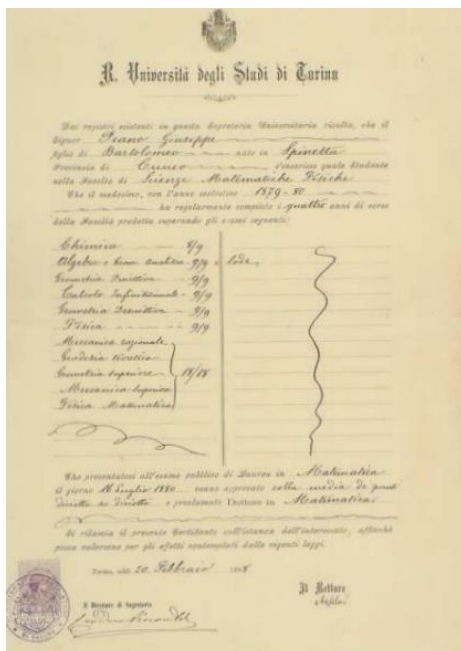 R. Università degli Studi di Torino
Dai registri esistenti in questa Segreteria Universitaria risulta, che il
Signor Peano Giuseppe
figlio di Bartolomeo nato in Spinetta
Provincia di Cuneo s'inscrisse quale Studente
nella Facoltà di Scienze Matematiche Fisiche
Che il medesimo, con l'anno scolastico 1879-80
ha regolarmente compiuto i quattro anni di corso
della Facoltà predetta superando gli esami seguenti:
Chimica 8/9
Algebra e Geom. Analitica 9/9 e lode,
Geometria Proiettiva 9/9
Calcolo Infinitesimale 9/9
Geometria Descrittiva 9/9
Fisica 9/9
Meccanica razionale
Geodesia teoretica
Geometria superiore 18/18
Meccanica superiore
Fisica Matematica
Che presentatosi all'esame pubblico di Laurea in Matematica
il giorno 16 Luglio 1880 venne approvato colla media de
e proclamato Dottore in Matematica
Si rilascia il presente Certificato sull'istanza dell'interessato, affinchè
possa valersene per gli effetti contemplati dalle vigenti leggi.
Torino, addì 20 Febbraio
Il Rettore
Il Direttore di Segreteria